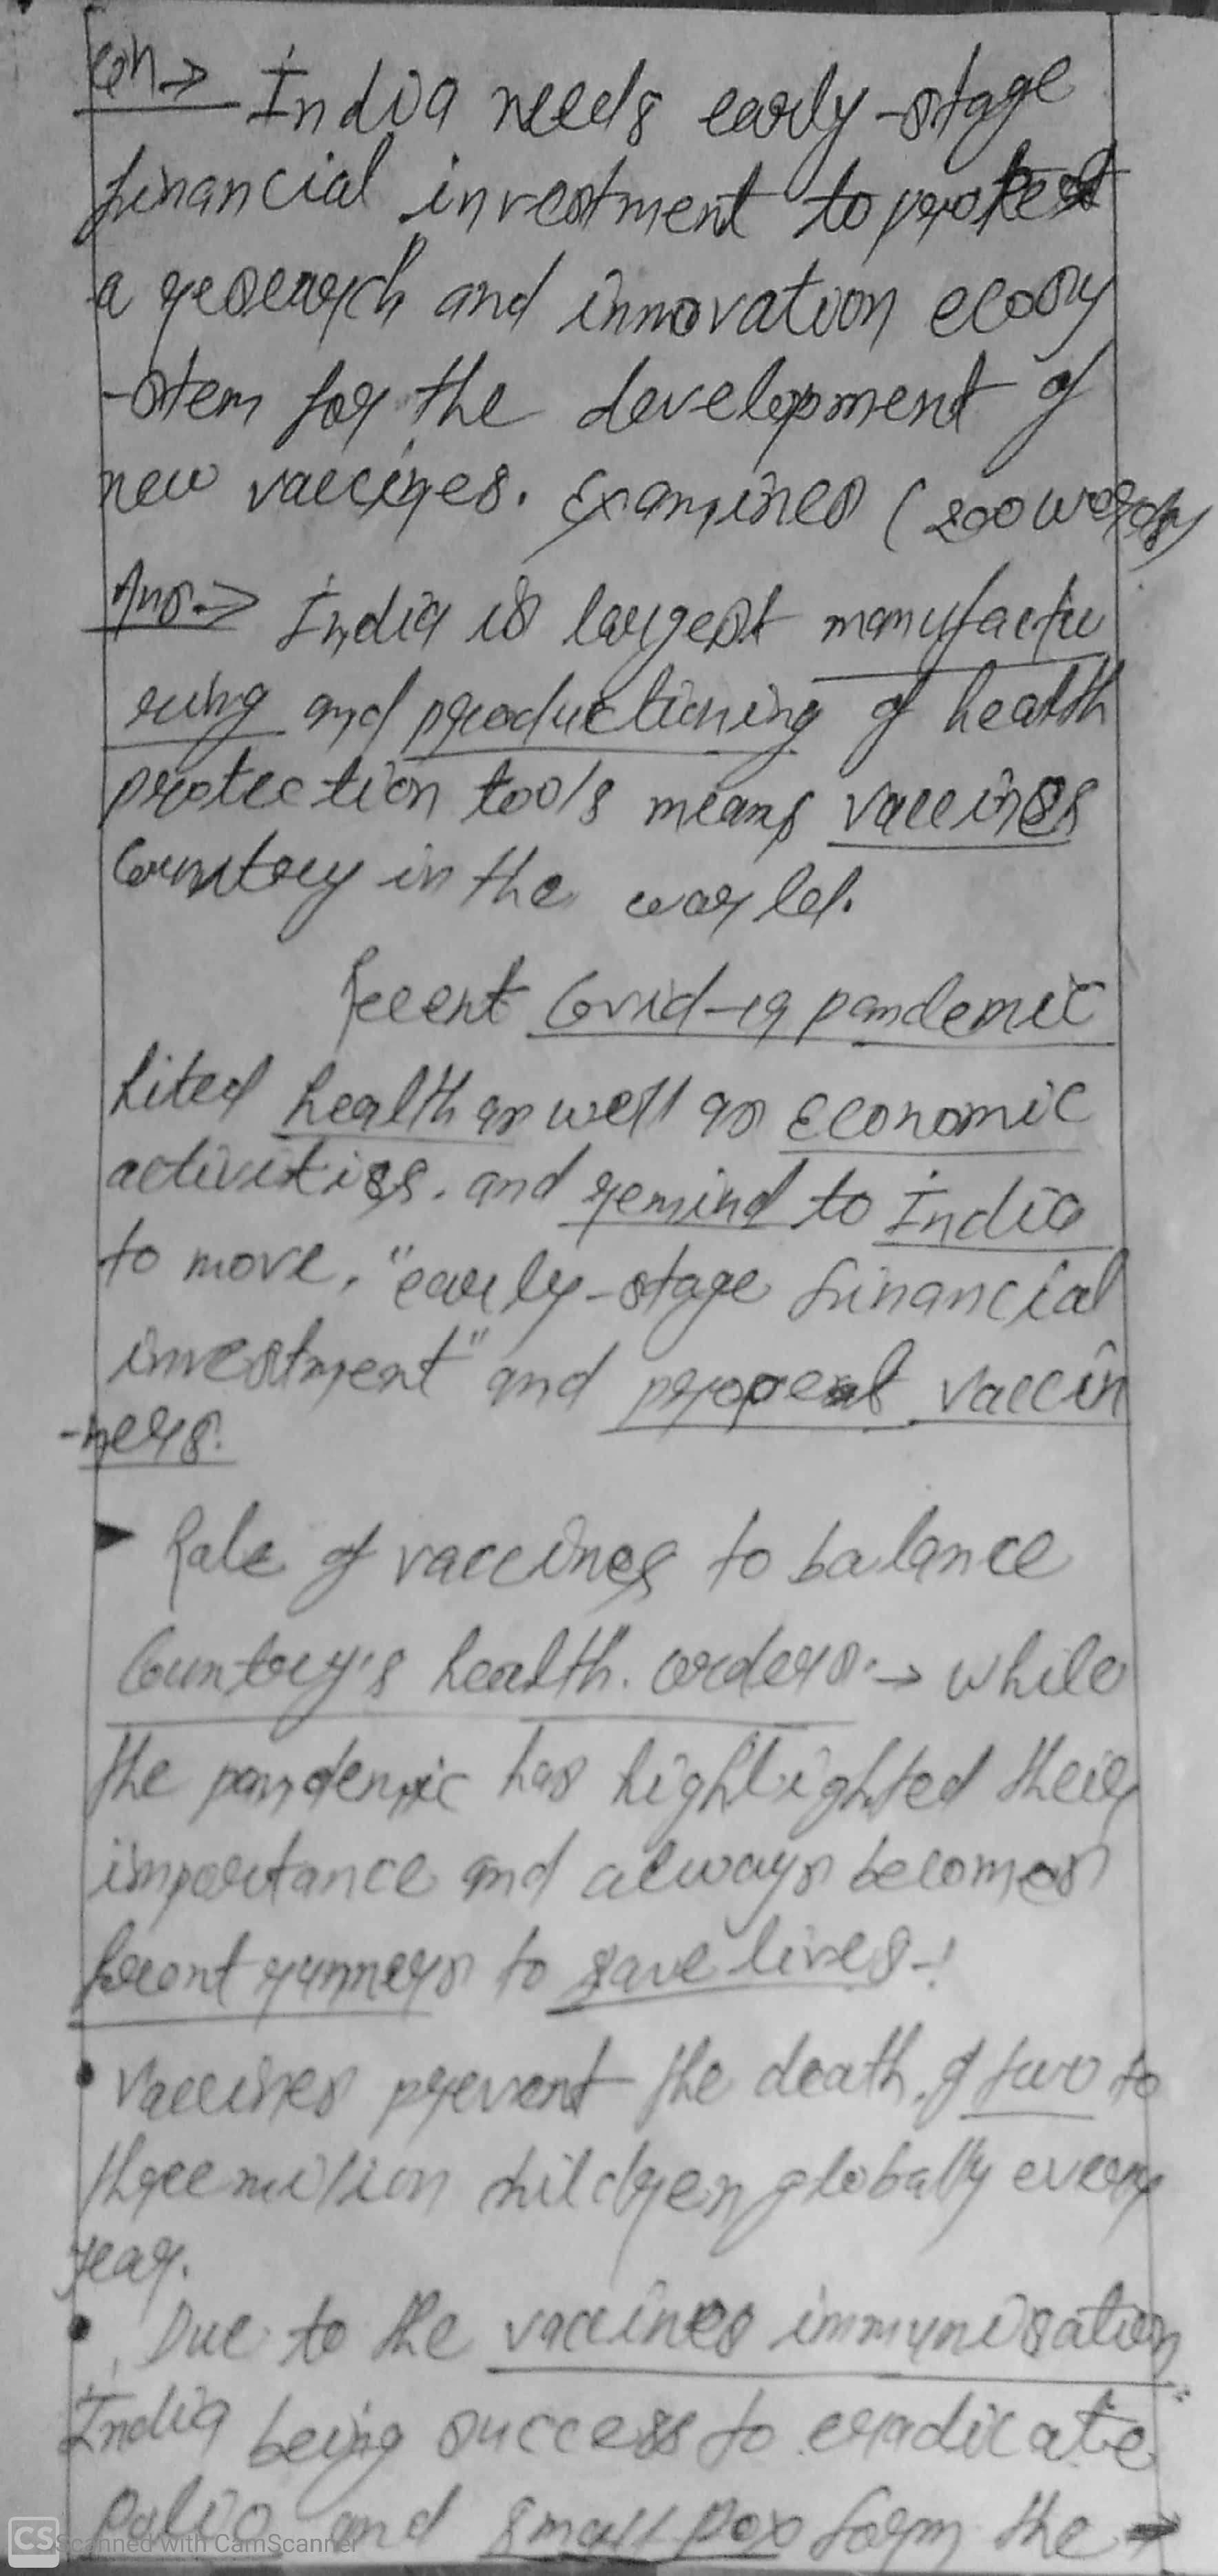 Qn→ India needs early-stage
financial investment to protect
a research and innovation ecosy
-stem for the development of
new vaccines. Examines (200 words)
Ans→ India is largest manufactu
ring and productioning of health
protection tools means vaccines
Country in the world.
Recent Covid-19 pandemic
hited health as well as economic
activities. and remind to India
to move. "early-stage financial
investment" and vaccin
-ners.
Role of vaccines to balance
Country's health. orders.→ while
the pandemic has highlighted their
importance and always becomes
front runners to save lives-!
• Vaccines prevent the death of two to
three million children globally every
year.
• Due to the vaccines immunisation
India being success to eradicate
Polio and small pox form the →
CS Scanned with CamScanner